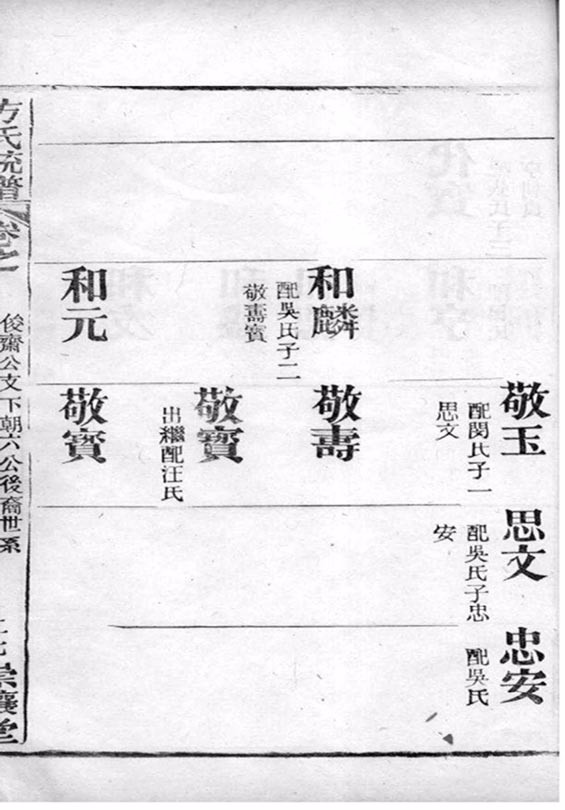 敬玉
配閔氏子一
思文
思文
配吳氏子忠
安
忠安
配吳氏
和麟
配吳氏子二
敬壽寳
敬壽
敬寳
出繼配汪氏
和元
敬寳
方氏統譜
卷之
俊齋公文下朝六公後裔世系
崇讓堂